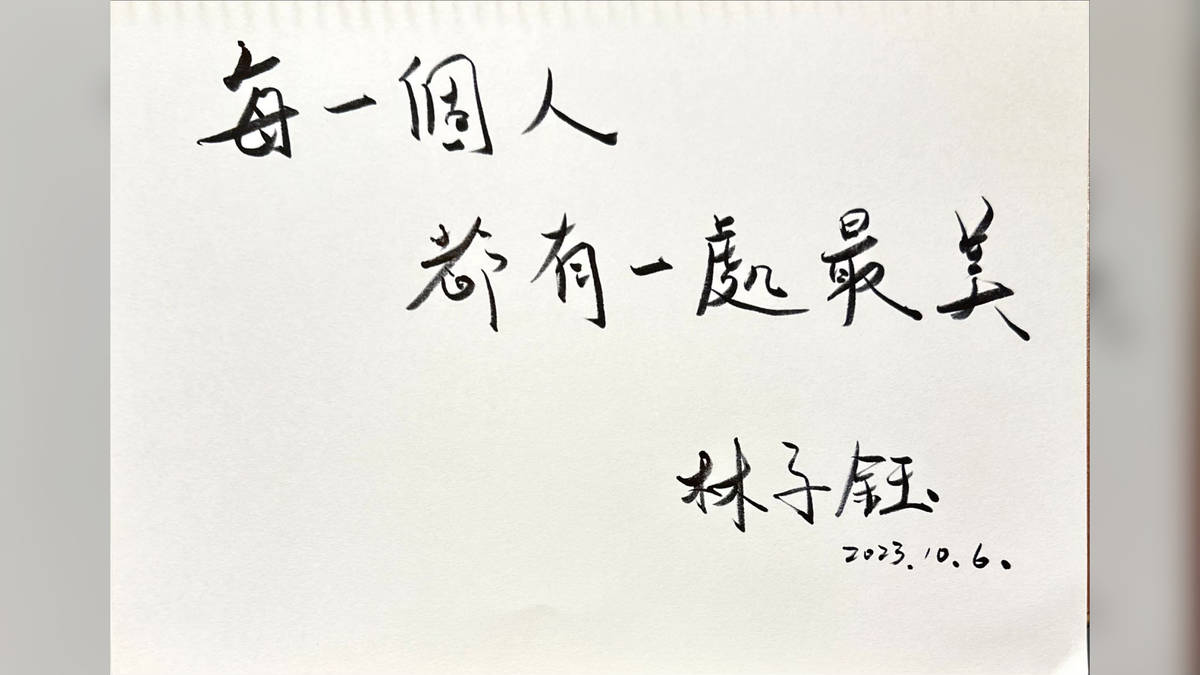 每一個人
都有一處最美
林子鈺
2023.10.6.